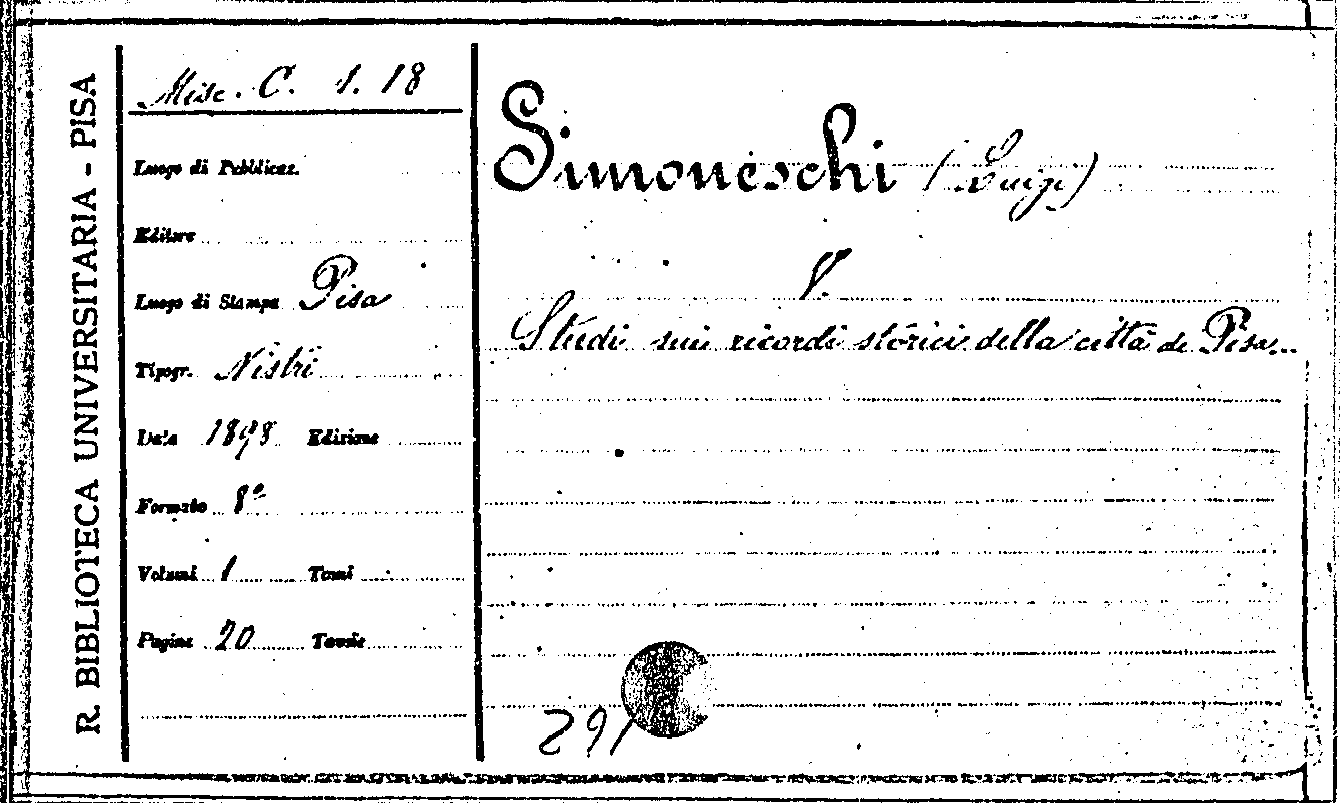 R. BIBLIOTECA UNIVERSITARIA - PISA
Misc. C. 1. 18
Luogo di Pubblicaz.
Editore
Luogo di Stampa Pisa
Tipogr. Nistri
Data 1898 Edizione
Formato 8º
Volumi 1 Tomi
Pagine 20 Tavole
Simoneschi (Luigi)
V.
Studi sui ricordi storici della città di Pisa...
291